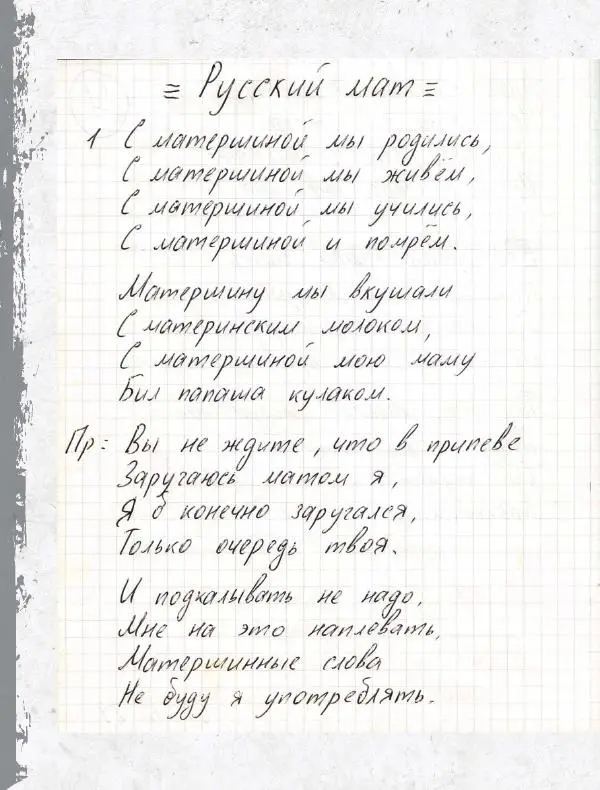 ≡ Русский мат ≡
1 С матершиной мы родились,
С матершиной мы живём,
С матершиной мы учились,
С матершиной и помрём.
Матершину мы вкушали
С материнским молоком,
С матершиной мою маму
Бил папаша кулаком.
Пр: Вы не ждите, что в припеве
Заругаюсь матом я,
Я б конечно заругался,
Только очередь твоя.
И подкалывать не надо,
Мне на это наплевать,
Матершинные слова
Не буду я употреблять.